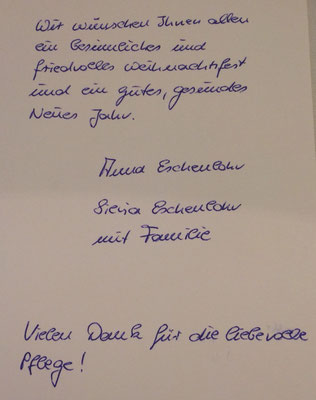 Wir wünschen Ihnen allen
ein besinnliches und
friedvolles Weihnachtsfest
und ein gutes, gesundes
Neues Jahr.
Anna Eschenlohr
Eschenlohr
mit Familie
Vielen Dank für die liebevolle
Pflege!